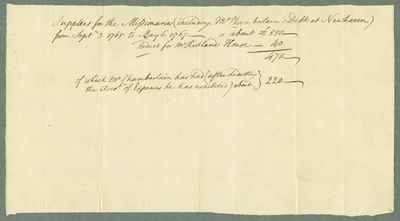 Supplies for the Missionaries (including Mr Chamberlain's Debts at Newhaven)
from Septr 3. 1765 to May 6. 1767 — is about £ 510 —
Deduct for Mr Kirtlands House — 40
470 —
of which Mr Chamberlain has had (after
the Accot of Expences he has exhibited) about 220 —